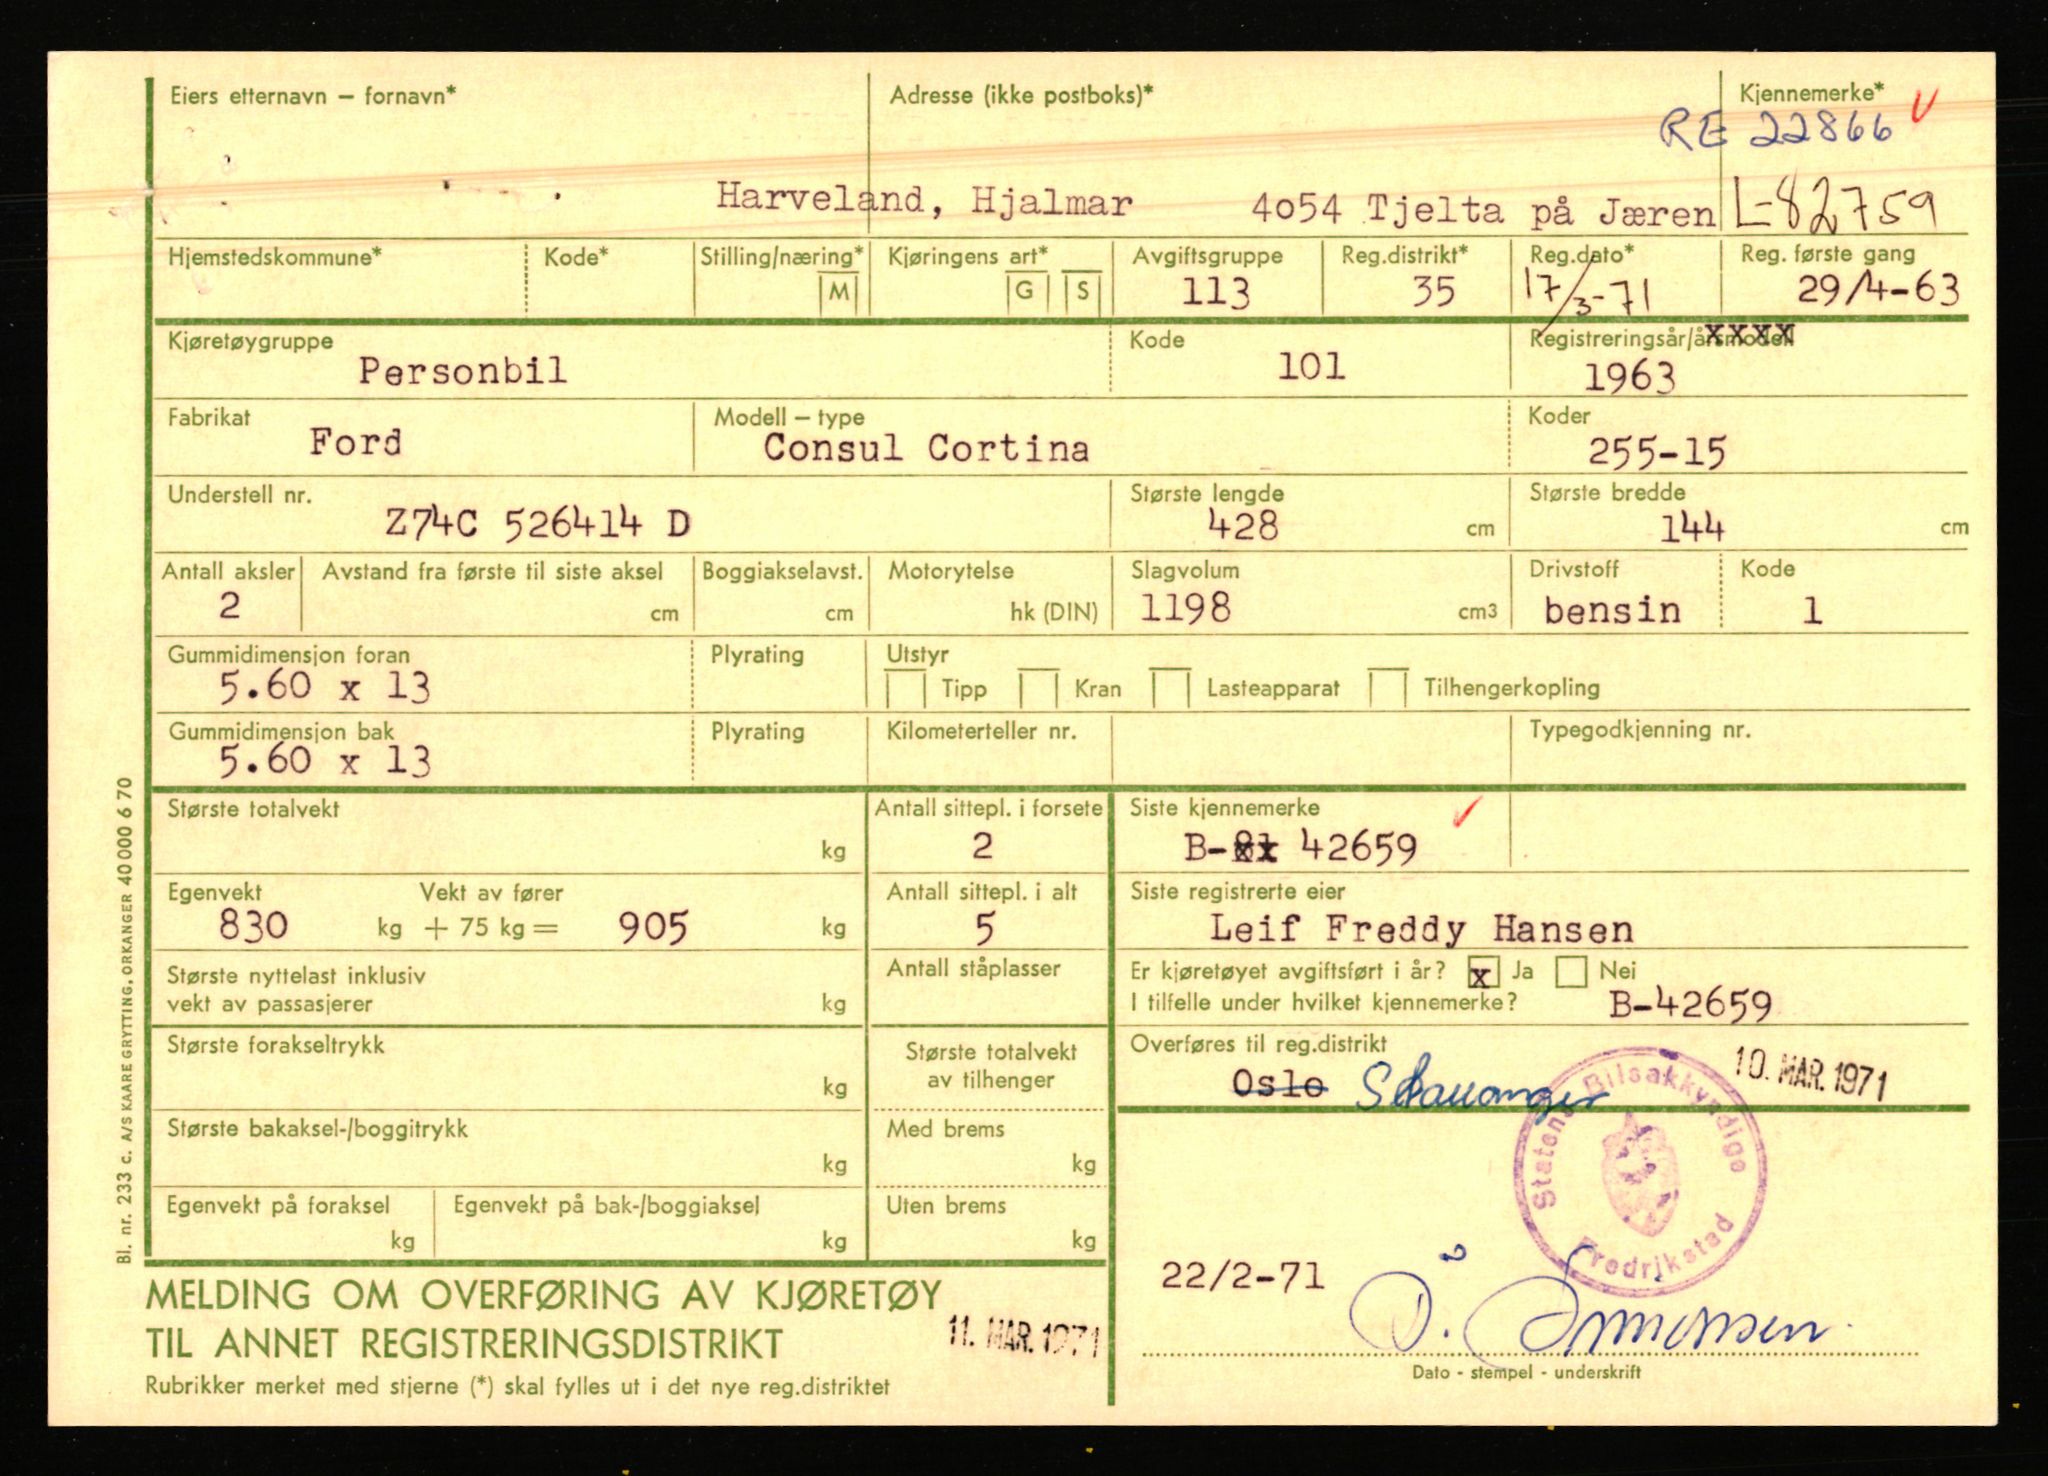 Eiers etternavn – fornavn* Adresse (ikke postboks)* Kjennemerke* V
RE 22866
Harveland, Hjalmar 4054 Tjelta på Jæren L-82759
Hjemstedskommune* Kode* Stilling/næring* Kjøringens art* Avgiftsgruppe Reg.distrikt* Reg.dato* Reg. første gang
M G S 113 35 17/3-71 29/4-63
Kjøretøygruppe Kode Registreringsår/årsmodell xxxx
Personbil 101 1963
Fabrikat Modell – type Koder
Ford Consul Cortina 255-15
Understell nr. Største lengde Største bredde
Z74C 526414 D 428 cm 144 cm
Antall aksler Avstand fra første til siste aksel Boggiakselavst. Motorytelse Slagvolum Drivstoff Kode
2 cm cm hk (DIN) 1198 cm3 bensin 1
Gummidimensjon foran Plyrating Utstyr
5.60 x 13 Tipp Kran Lasteapparat Tilhengerkopling
Gummidimensjon bak Plyrating Kilometerteller nr. Typegodkjenning nr.
5.60 x 13
Største totalvekt Antall sittepl. i forsete Siste kjennemerke
kg 2 B- 42659
Egenvekt Vekt av fører Antall sittepl. i alt Siste registrerte eier
830 kg + 75 kg = 905 kg 5 Leif Freddy Hansen
Største nyttelast inklusiv Antall ståplasser Er kjøretøyet avgiftsført i år? x Ja Nei
vekt av passasjerer kg I tilfelle under hvilket kjennemerke? B-42659
Største forakseltrykk Største totalvekt Overføres til reg.distrikt
kg av tilhenger Oslo Stavanger 10. MAR. 1971
Største bakaksel-/boggitrykk Med brems Statens Bilsakkyndige
kg kg
Egenvekt på foraksel Egenvekt på bak-/boggiaksel Uten brems Fredrikstad
kg kg kg
MELDING OM OVERFØRING AV KJØRETØY 22/2-71
TIL ANNET REGISTRERINGSDISTRIKT 11. MAR. 1971
Rubrikker merket med stjerne (*) skal fylles ut i det nye reg.distriktet Dato - stempel - underskrift
Bl. nr. 233 c. A/S KAARE GRYTTING, ORKANGER 40 000 6 70